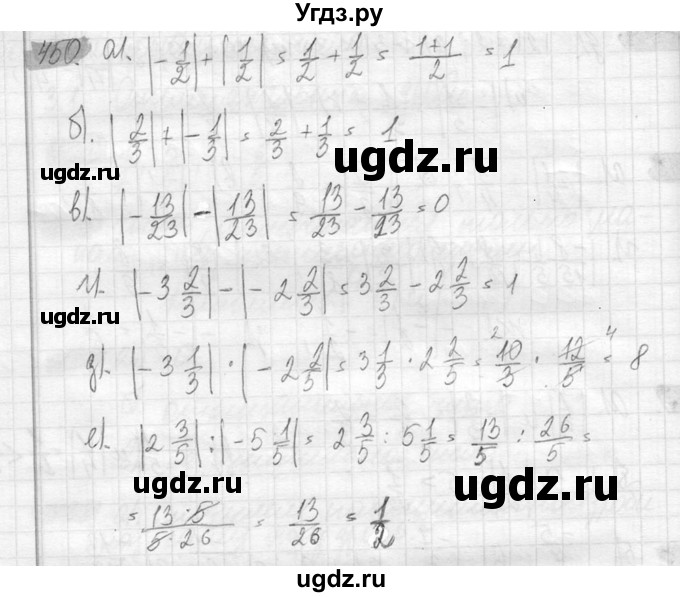 Угдз.ру
450. а). |-1/2| + |1/2| = 1/2 + 1/2 = (1+1)/2 = 1
б). |2/3| + |-1/3| = 2/3 + 1/3 = 1
ugdz.ru
ugdz.ru
в). |-13/23| - |13/23| = 13/23 - 13/23 = 0
г). |-3 2/3| - |-2 2/3| = 3 2/3 - 2 2/3 = 1
ugdz.ru
ugdz.ru
д). |-3 1/3| · |-2 2/5| = 3 1/3 · 2 2/5 = 2 10/3 · 12/5 4 = 8
е). |2 3/5| : |-5 1/5| = 2 3/5 : 5 1/5 = 13/5 : 26/5 =
ugdz.ru
ugdz.ru
= 13·5/5·26 = 13/26 = 1/2
ugdz.ru